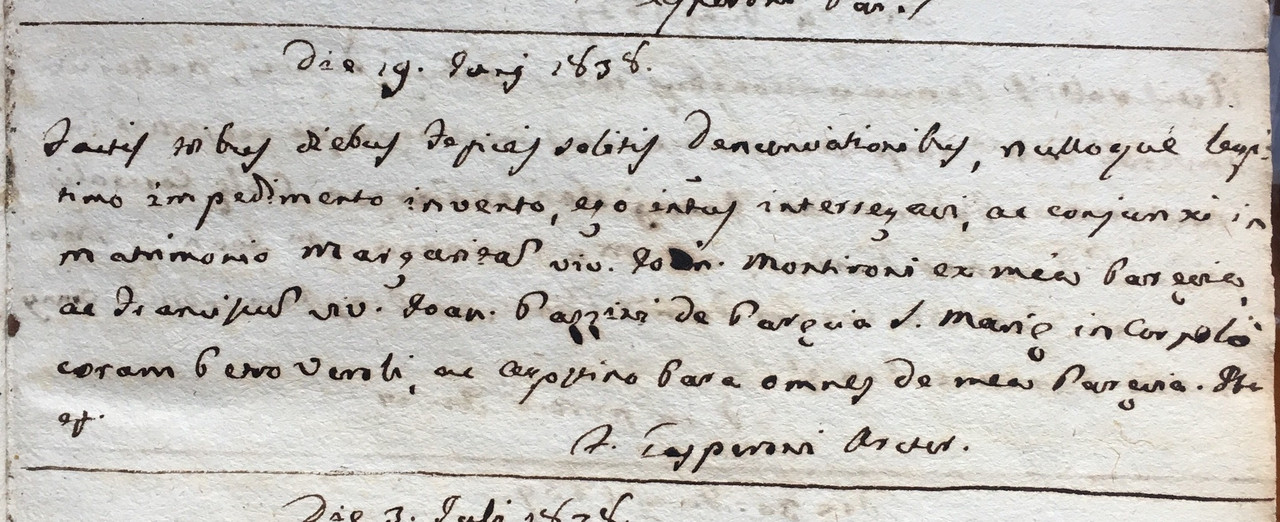 Die 19. Junij 1838.
Factis tribus diebus festivis solitis Denunciationibus, nulloque legi-
timo impedimento invento, ego infrus interrogavi, ac conjunxi in
matrimonio Margaritam viv. Join. Montironi ex mea Parœcia,
ac Franciscum viv. Joan. Pazzini de Parœcia S. Mariæ in Corpolò
coram Petro Veroli, ac Agostino Para omnes de mea Parœcia. Ita
est.
F. Gasperoni Arcter.
Die 3. Juli 1838.